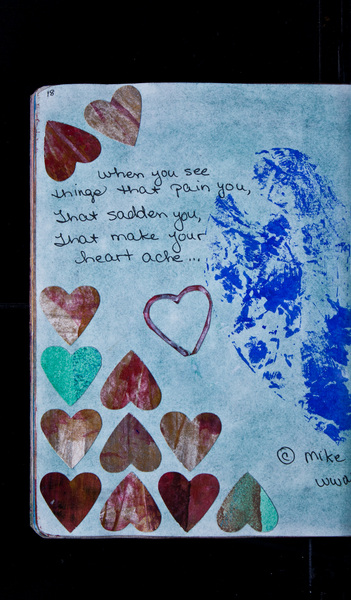 18
when you see
things that pain you,
That sadden you,
That make your
heart ache...
© Mike
www